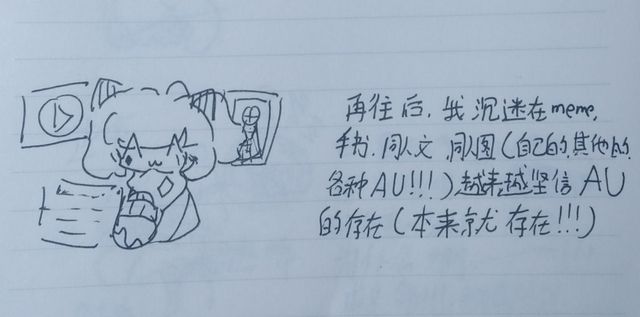 再往后，我沉迷在meme，
手书.同人文.同人图(自己的.其他的.
各种AU!!!)越来越坚信AU
的存在(本来就存在!!!)